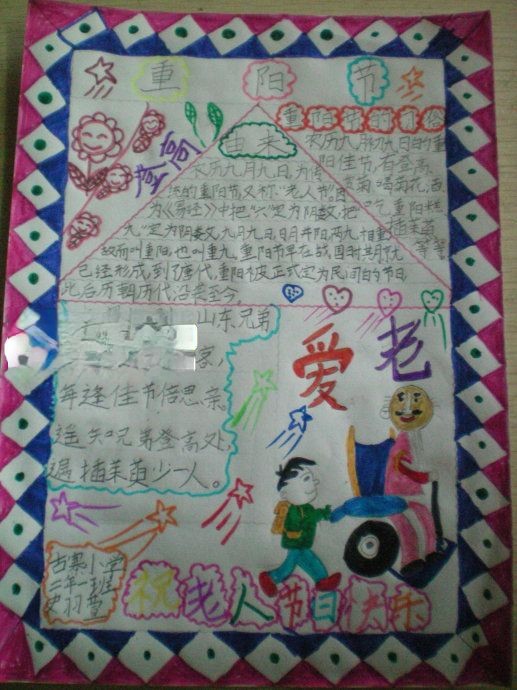 重阳节
登高
由来
农历九月九日,为传
统的重阳节又称“老人节”。因
为《易经》中把“六”定为阴数,把
九”定为阳数,九月九日,日月并阳,两九相重
故而叫重阳,也叫重九,重阳节早在战国时期就
已经形成,到了唐代,重阳被正式定为民间的节日
此后历朝历代沿袭至今。
重阳节的习俗
农历九月初九日的重
阳佳节,有登高、
赏菊 喝菊花酒
吃重阳糕
插茱萸
等等
山东兄弟
客,
每逢佳节倍思亲
遥知兄弟登高处,
遍插茱萸少一人。
爱老
小学
三年一班
祝老人节日快乐